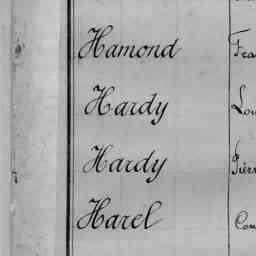 Hamond
Hardy
Hardy
Harel